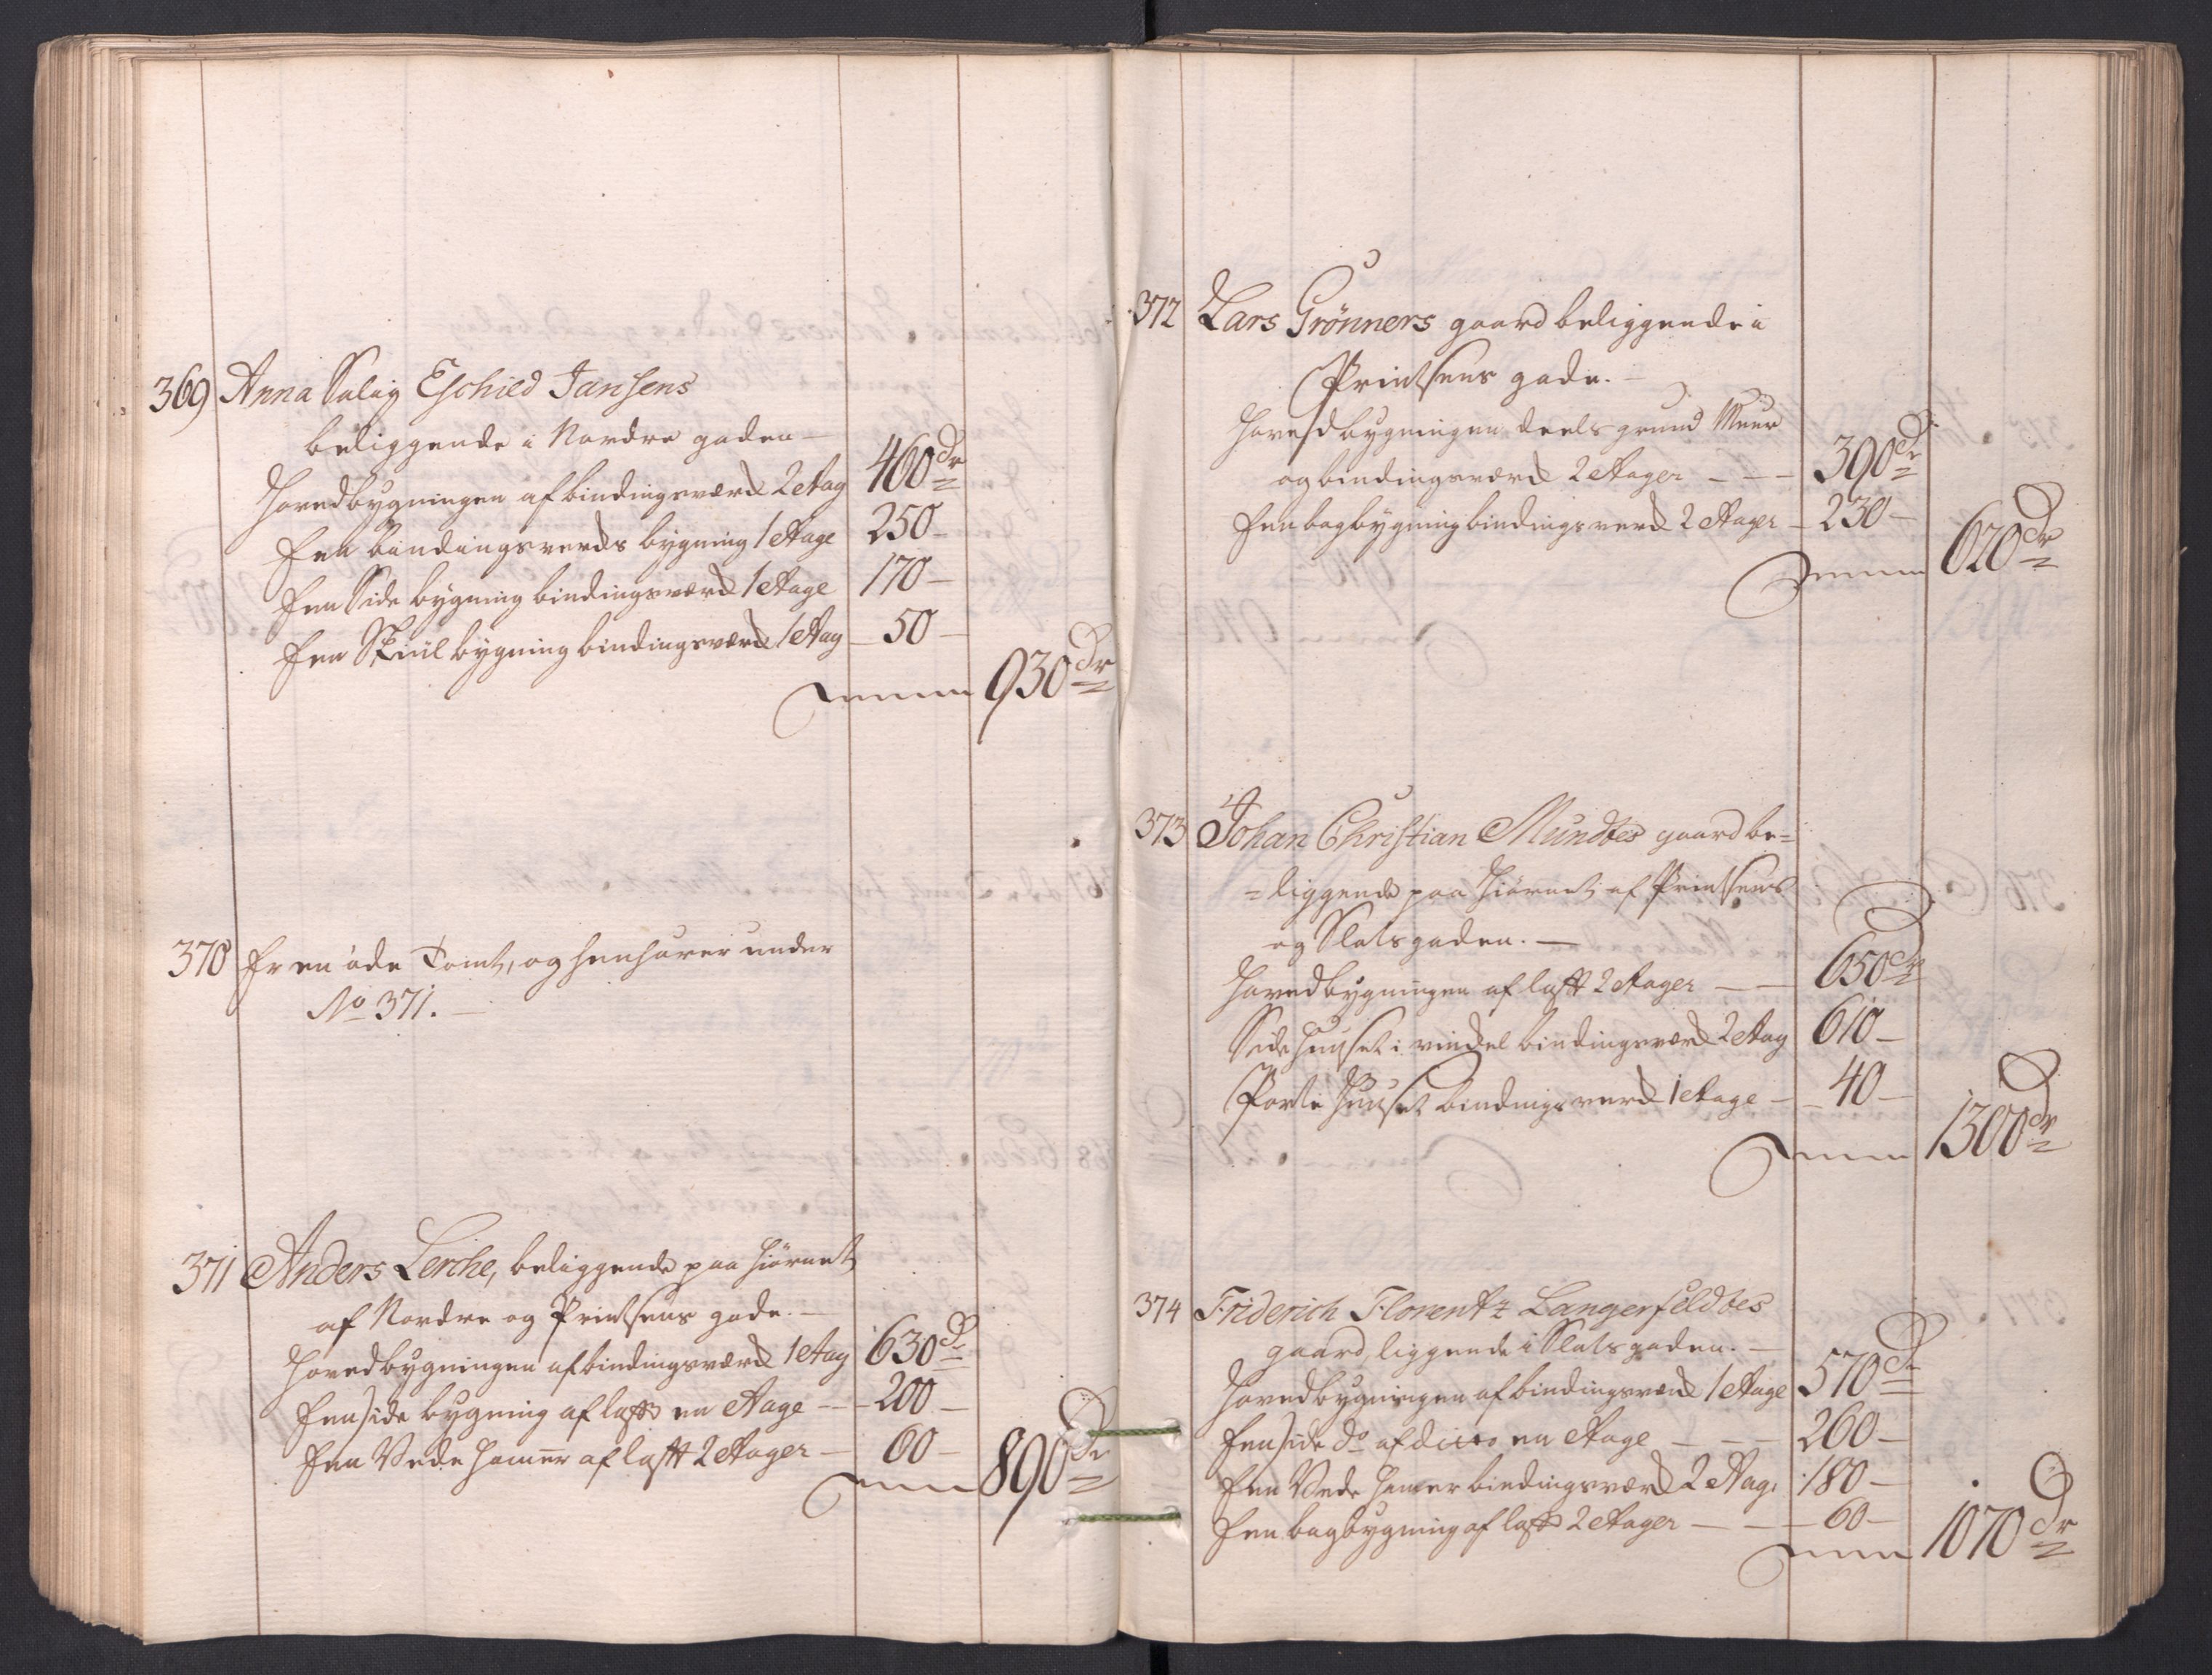 369 Anna Salig Eschild Jansens
beliggende i Nordre gaden —
Hovedbygningen af bindingsværk 2 etag 460 Dr
Een bindingsverks bygning 1 etage 250 –
Een Side bygning bindingsværk 1 etage 170 –
Een Skiul bygning bindingsværk 1 etag – 50 –
930 Dr
370 Er en öde Tomt, og henhörer under
No 371. –
371 Anders Lerche, beliggende paa Hiörnet
af Nordre og Printsens gade. –
Hovedbygningen af bindingsværk 1 etag 630 Dr
Een side bygning af laft en etage – – 200 –
Een Vede Hamer af laft 2 etager – 60 –
890 Dr
372 Lars Grönners gaard beliggende i
Printsens gade. –
Hovedbygningen deels grund Muur
og bindingsværk 2 etager – – – 390 Dr
Een bagbygning bindingsverk 2 etager – 230 –
620 Dr
373 Johan Christian Mundtes gaard be=
=liggende paa Hiörnet af Printsens
og Slots gaden. —
Hovedbygningen af laft 2 etager — — 650 Dr
Side Huuset i vinckel bindingsværk 2 etag 610 –
Porte Huuset bindings verk 1 etage – – 40 –
1300 Dr
374 Friderich Florentz Langerfeldtes
gaard, liggende i Slots gaden. –
Hovedbygningen af bindingsværk 1 etage 570 Dr
Een side do af ditto en etage – – – 260 –
Een Vede Hamer bindingsværk 2 etag: 180 –
Een bagbygning af laft 2 etager – – – 60 –
1070 Dr